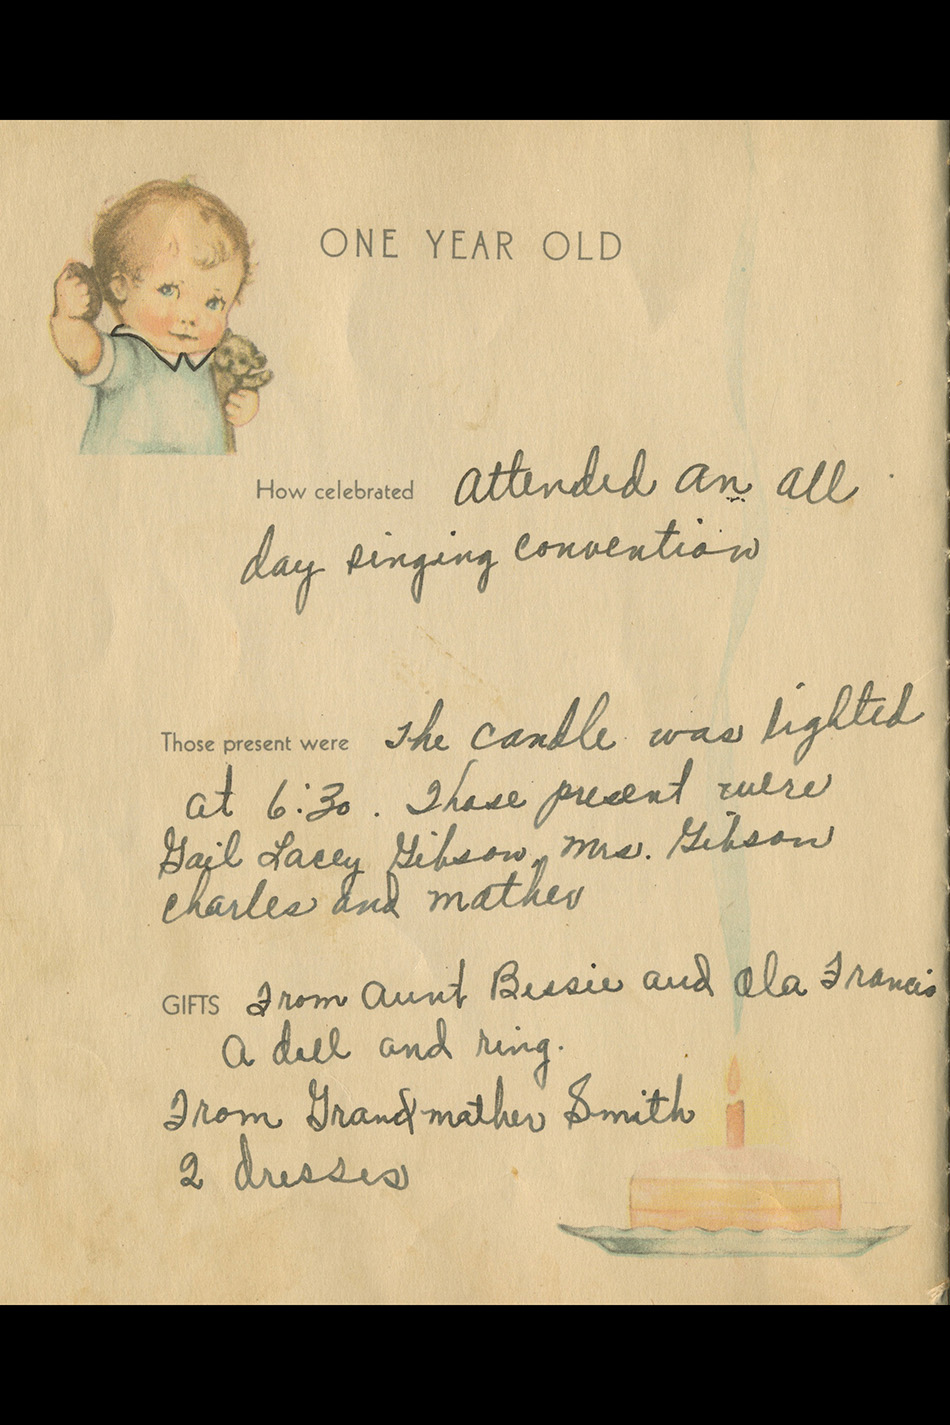 ONE YEAR OLD
How celebrated attended an all
day singing convention
Those present were The candle was lighted
at 6:30. Those present were
Gail Lacey Gibson, Mrs. Gibson
Charles and mother
GIFTS From Aunt Bessie and Ola Francis
A doll and ring.
From Grandmother Smith
2 dresses